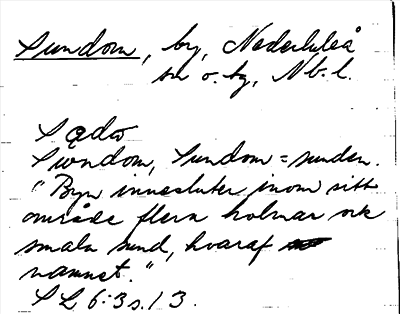 Sundom, by, Nederluleå
sn o. tg, Nb. l.
Sundom, Sundom = sunden.
"Byn innesluter inom sitt
område flera holmar ock
smala sund, hvaraf
namnet."
SL 6:3 s. 13.